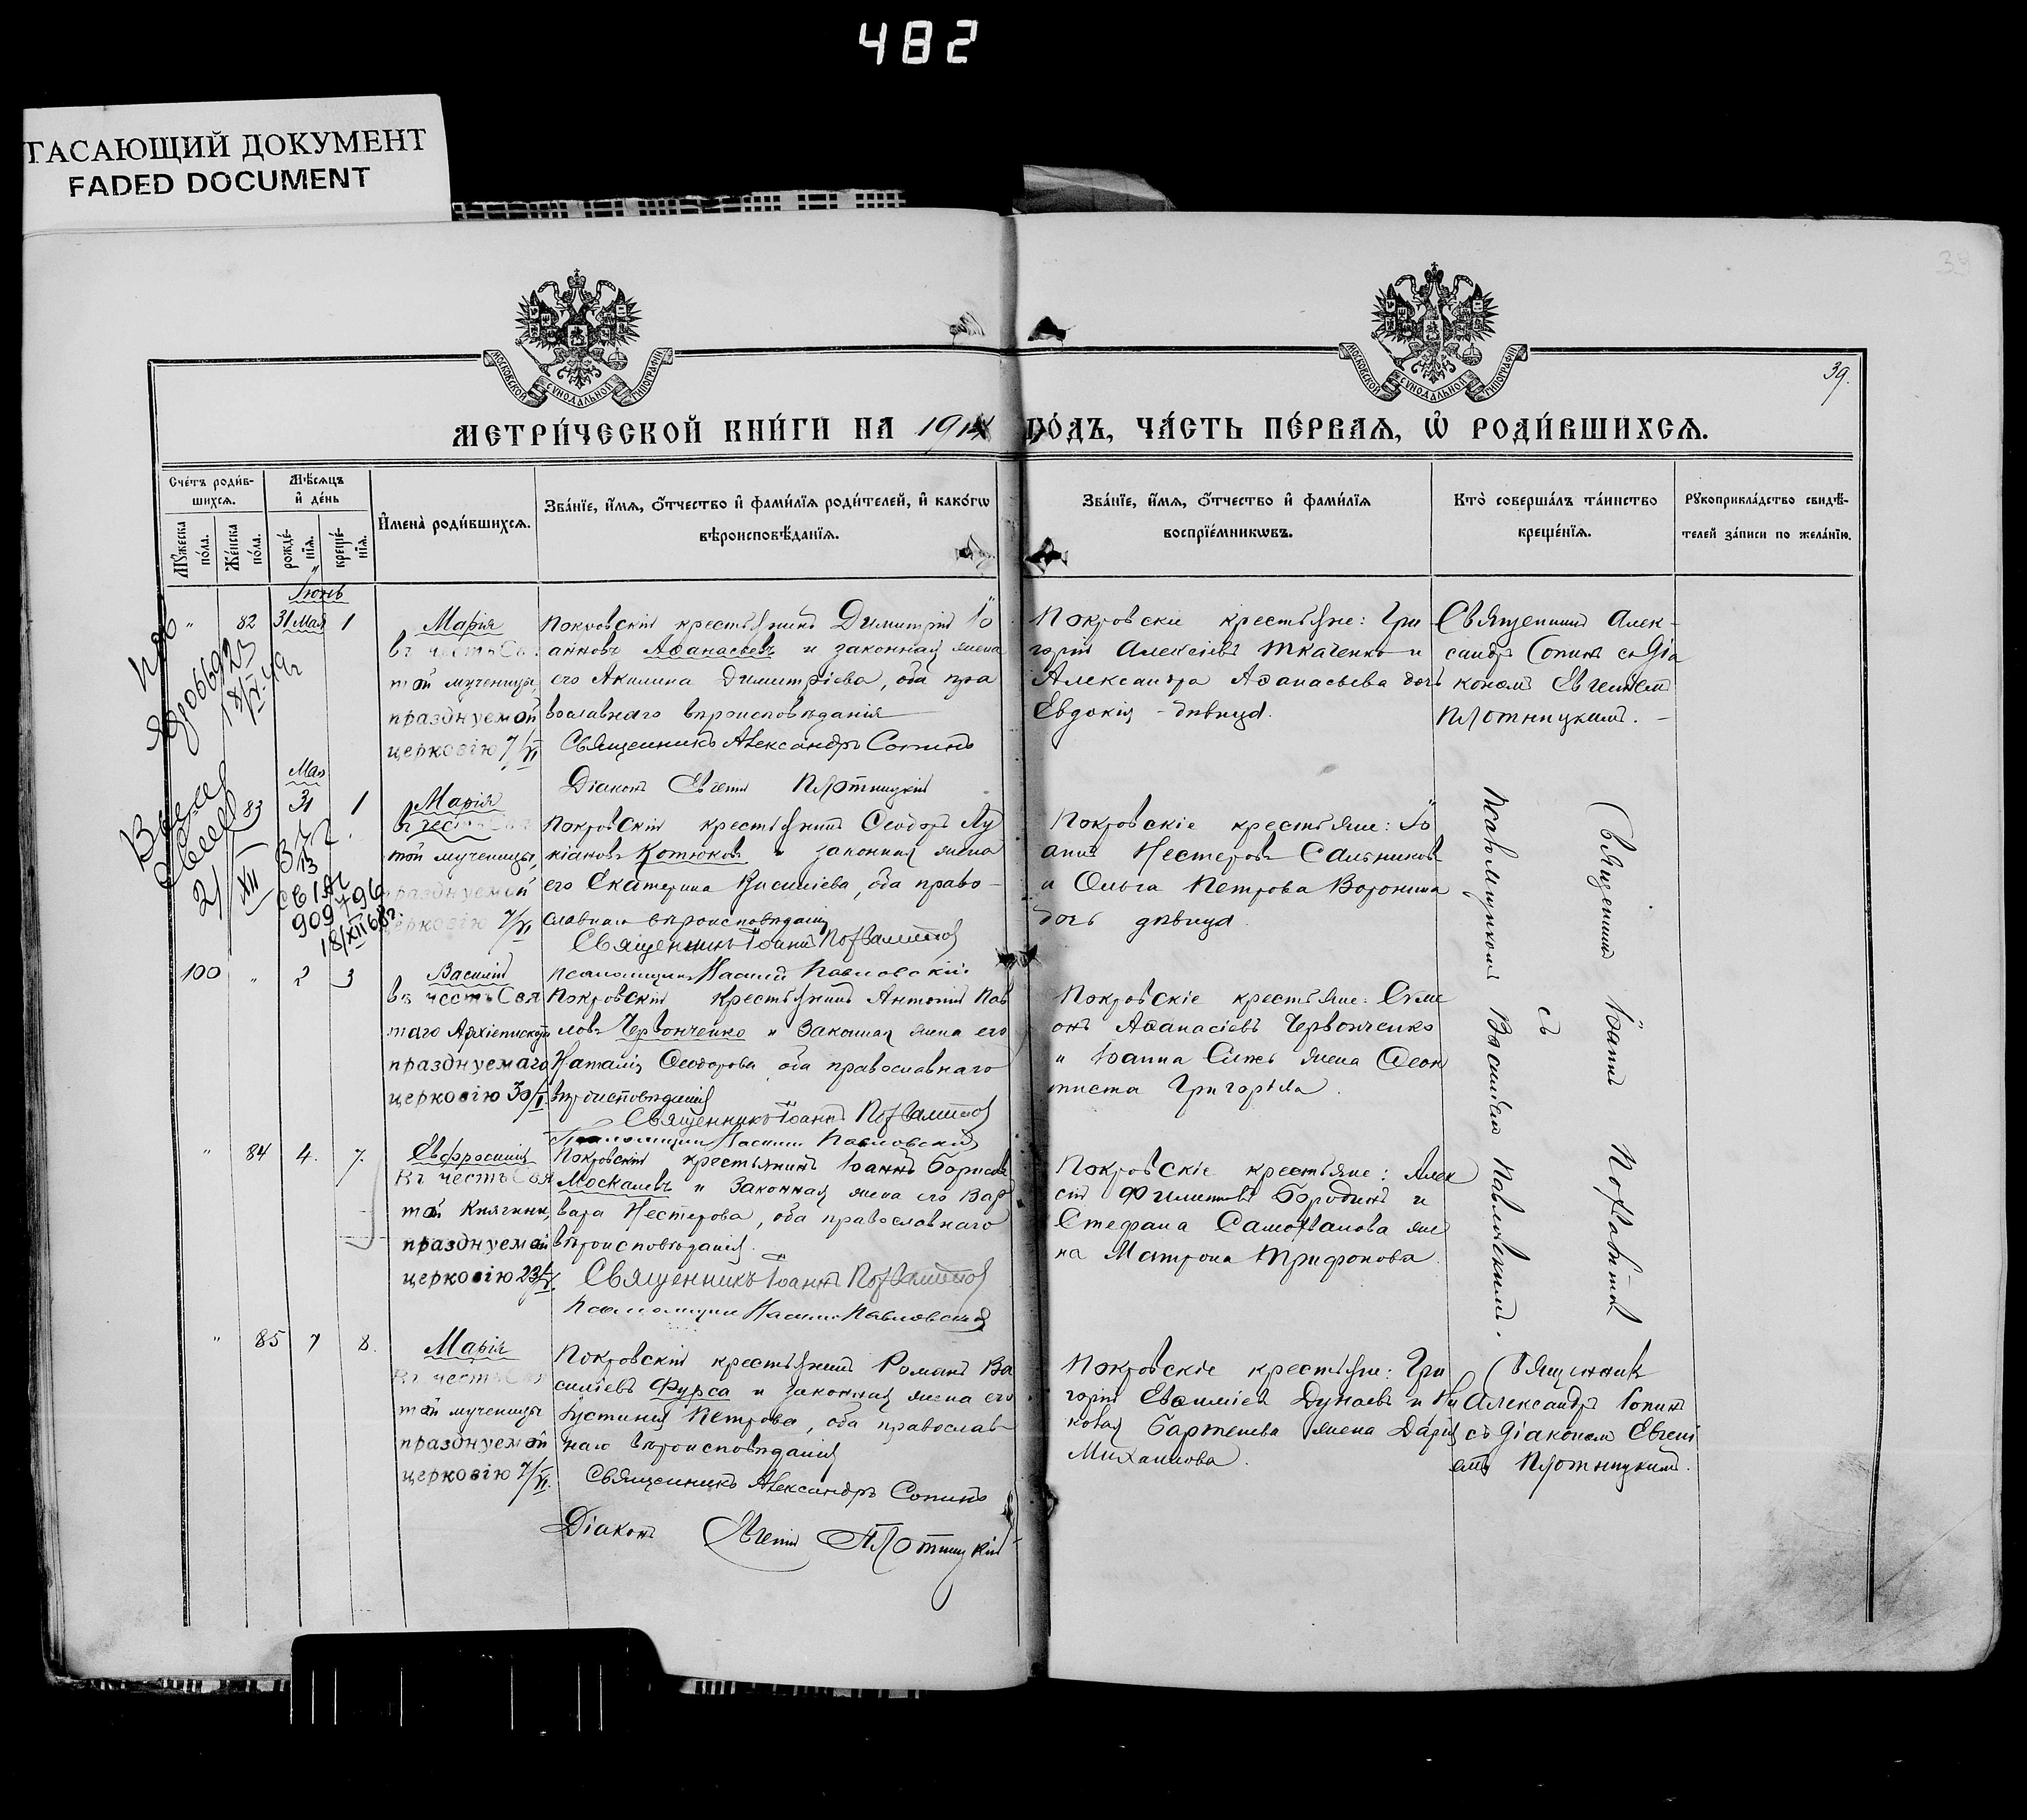 482
ГАСАЮЩИЙ ДОКУМЕНТ
FADED DOCUMENT
39.
МОСКОВСКОЙ СУНОДАЛЬНОЙ ТИПОГРАФІИ
МОСКОВСКОЙ СУНОДАЛЬНОЙ ТИПОГРАФІИ
МЕТРИ́ЧЕСКОЙ КНИ́ГИ НА 1914 ГО́ДЪ, ЧА́СТЬ ПЕ́РВАЯ, Ѡ РОДИ́ВШИХСЯ.
Сче́тъ роди́в-
шихся.
Мѣ́сяцъ
и де́нь
Му́жеска
по́ла.
Же́нска
по́ла.
рожде́-
нїя.
креще́-
нїя.
Имена̀ роди́вшихся.
Зва́нїе, и́мя, ѻ́тчество и фами́лїя роди́телей, и како́гѡ
вѣроисповѣ́данїя.
Зва́нїе, и́мя, ѻ́тчество и фами́лїя
воспрїе́мникѡвъ.
Кто̀ соверша́лъ та́инство
креще́нїя.
Рꙋкоприкла́дство свидѣ́-
телей за́писи по жела́нїю.
Іюнь
" 82 31 Мая 1
Марія
въ честь Свя
той мученицы,
празднуемой
церковію 7/VI
Покровскій крестьянинъ Димитрій Іо
анновъ Аѳанасьевъ и законная жена
его Акилина Димитріева, оба пра
вославнаго вѣроисповѣданія
Священникъ Александръ Сопинъ
Діаконъ Евгеній Плотницкій
Покровскіе крестьяне: Гри
горій Алексіевъ Ткаченко и
Александра Аѳанасьева дочь
Евдокія - дѣвица.
Священникъ Алек-
сандръ Сопинъ съ діа
кономъ Евгеніемъ
Плотницкимъ.
Мая
83 31 1
Марія
въ честь Свя
той мученицы,
празднуемой
церковію 7/VI
Покровскій крестьянинъ Ѳеодоръ Лу
кіановъ Котюковъ и законная жена
его Екатерина Василіева, оба право-
славнаго вѣроисповѣданія
Священникъ Іоаннъ
Псаломщикъ Василій Павловскій
Покровскіе крестьяне: Іо
аннъ Нестеровъ Сальников
и Ольга Петрова Воронина
дочь дѣвица.
Священникъ Іоаннъ
съ
Псаломщикомъ Василіемъ Павловскимъ.
100 " 2 3
Василій
въ честь Свя
таго Архіепископа
празднуемаго
церковію 30/I
Покровскій крестьянинъ Антоній Пав
ловъ Червонченко и законная жена его
Наталія Ѳеодорова оба православнаго
вѣроисповѣданія
Священникъ Іоаннъ
Псаломщикъ Василій Павловскій
Покровскіе крестьяне: Симе
онъ Аѳанасіевъ Червонченко
и Іоанна жена Ѳеок
тиста Григорьева.
" 84 4. 7.
Евфросинія
Въ честь Свя
той Княгини,
празднуемой
церковію
Покровскій крестьянинъ Іоаннъ Борисовъ
Москалевъ и законная жена его Вар
вара Нестерова, оба православнаго
вѣроисповѣданія.
Священникъ Іоаннъ
Псаломщикъ Василій Павловскій
Покровскіе крестьяне: Алек
сій Филипповъ Бородинъ и
Стефана Самохвалова же
на Матрона Трифонова
" 85 7 8.
Марія
Въ честь Свя
той мученицы
празднуемой
церковію 7/VI.
Покровскій крестьянинъ Романъ Ва
силіевъ Фурса и законная жена его
Іустинія Петрова, оба православ
наго вѣроисповѣданія
Священникъ Александръ Сопинъ
Діаконъ Евгеній Плотницкій
Покровскіе крестьяне: Гри
горій Евѳиміевъ Дунаевъ и
Бартенева жена Дарія
Михаилова.
Священникъ
Александръ Сопинъ
съ діакономъ Евгені
емъ Плотницкимъ.